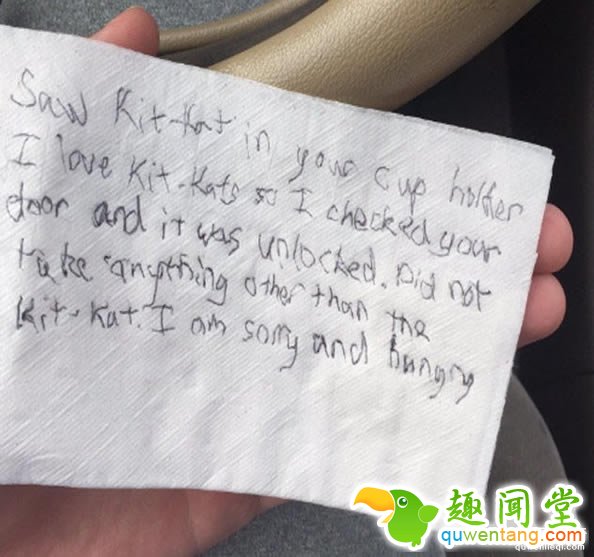 Saw Kit-Kat in your cup holder
I love Kit-Kats so I checked your
door and it was unlocked. Did not
take anything other than the
Kit-Kat. I am sorry and hungry
趣闻堂
quwentang.com